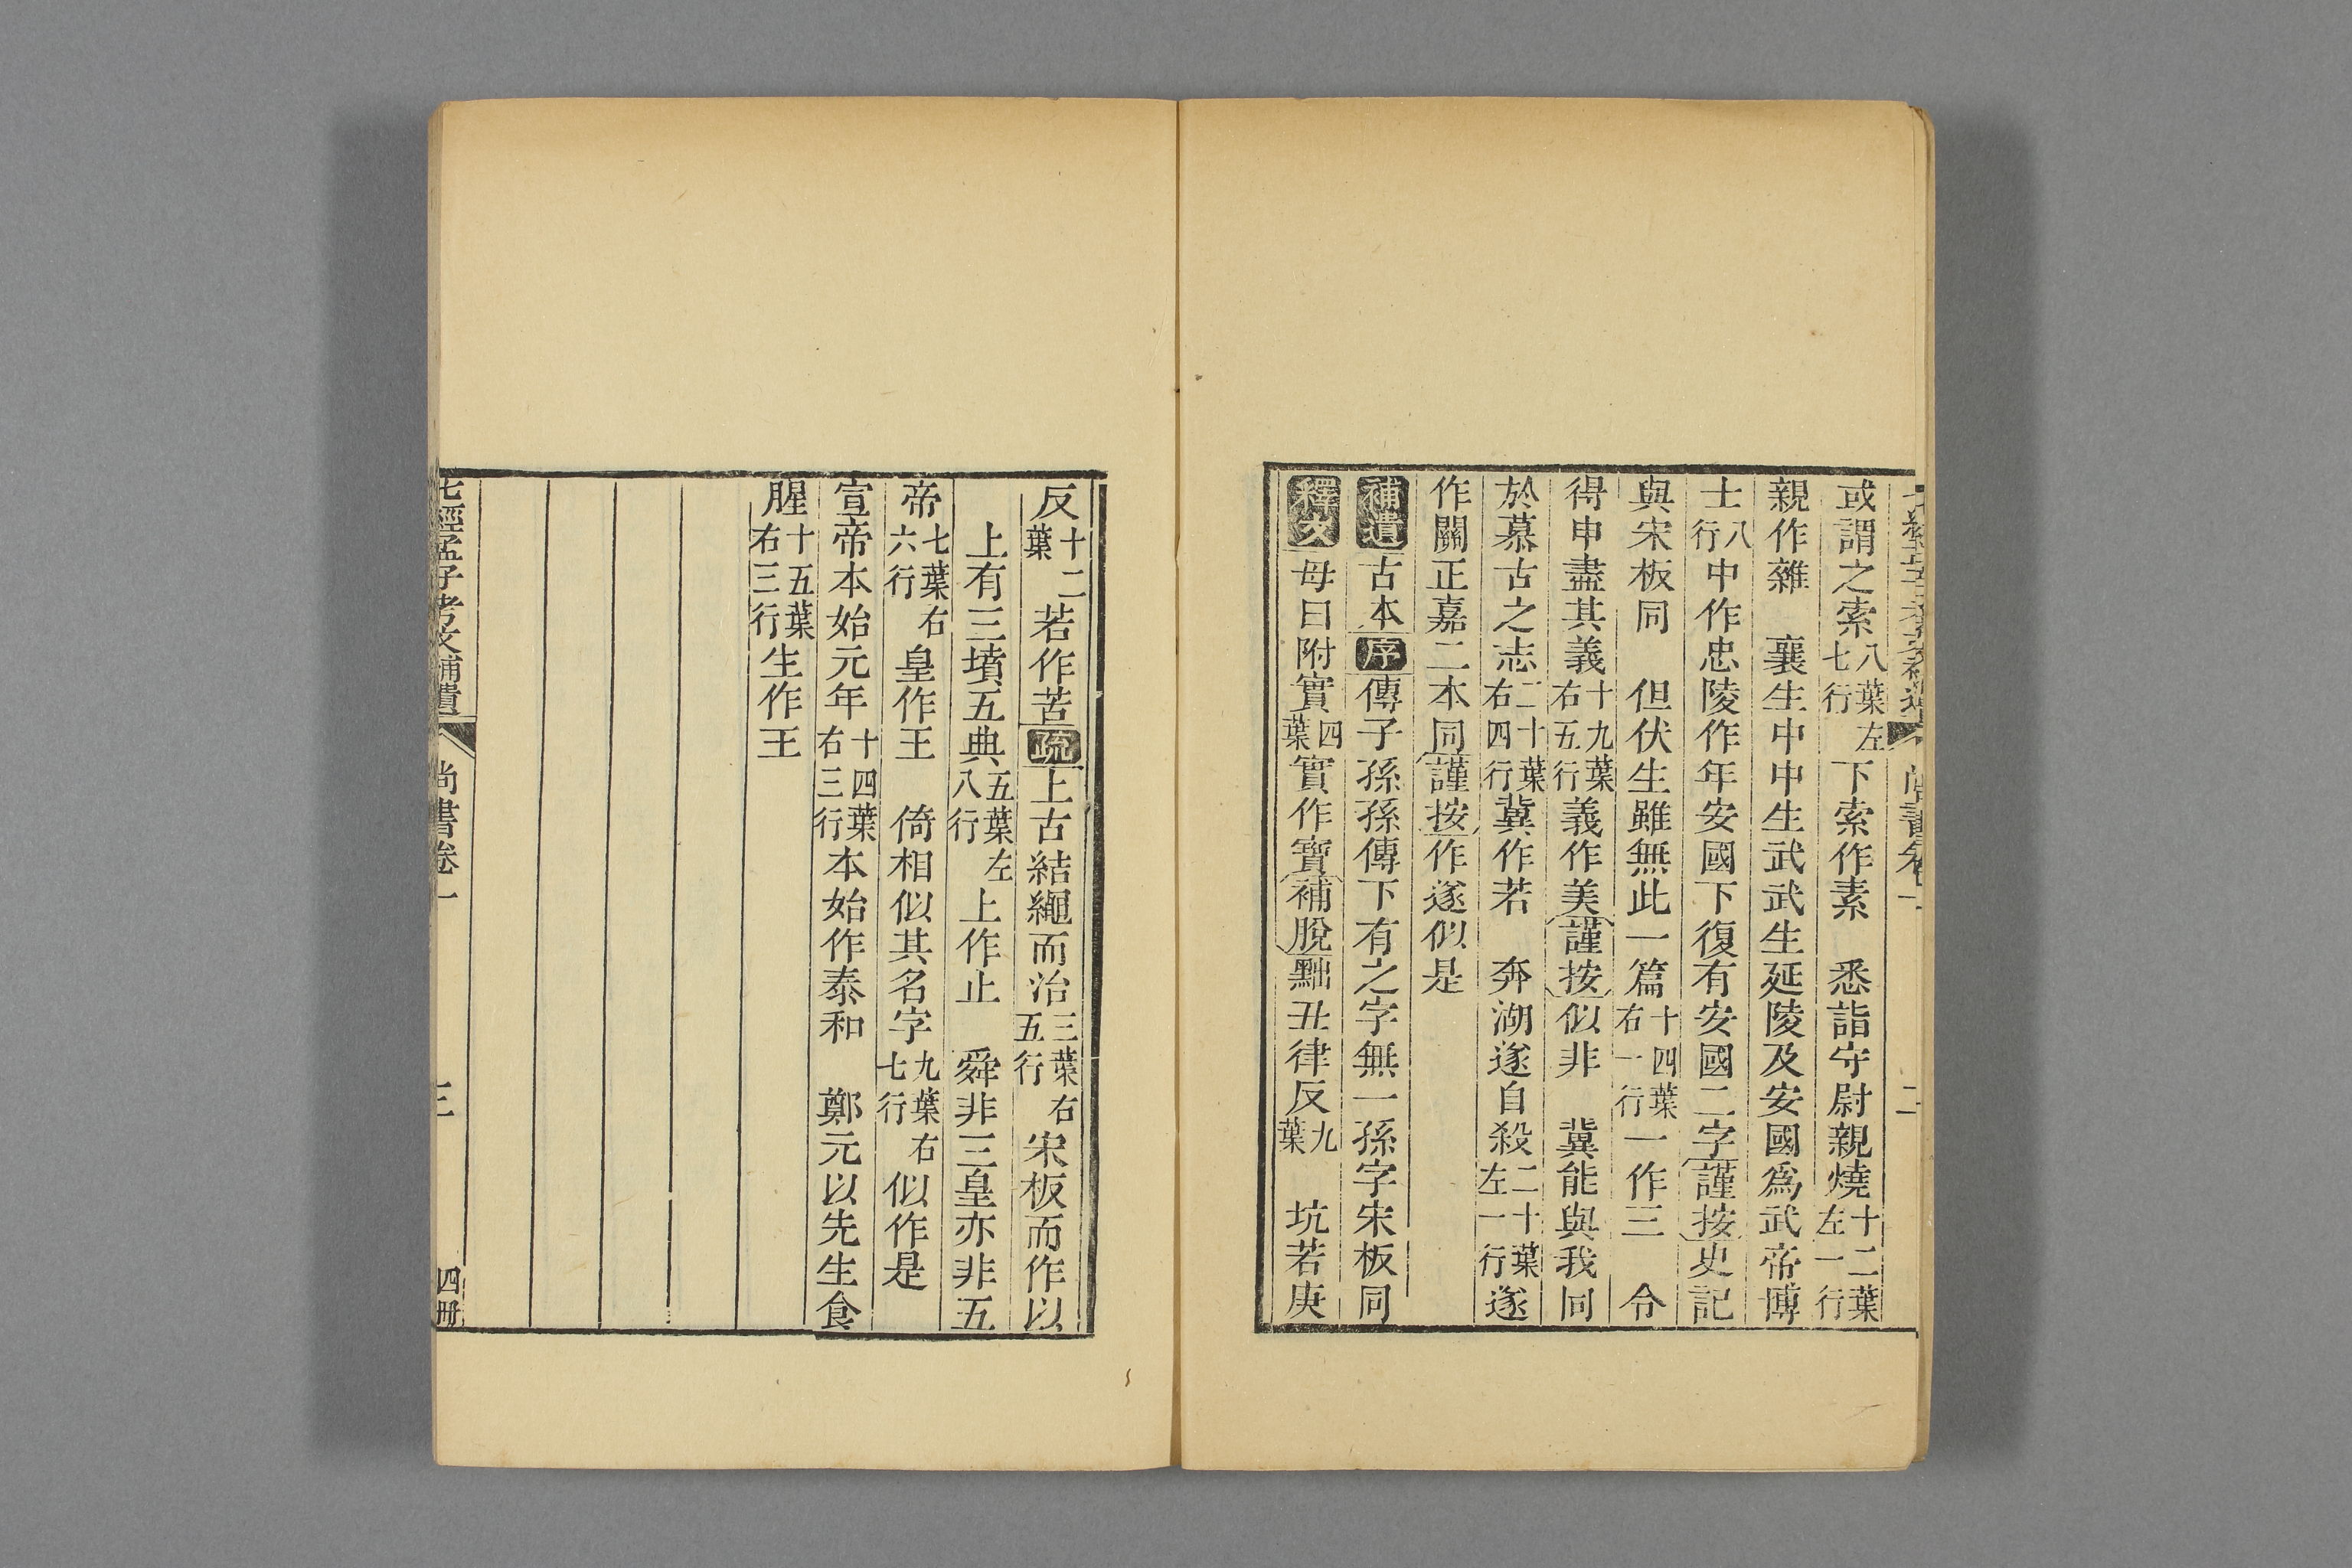 七經孟子考文補遺 尚書卷一 二
或謂之索八葉左七行下索作素 悉詣守尉親燒十二葉左一行
親作雜 襄生中中生武武生延陵及安國爲武帝博
士八行中作忠陵作年安國下復有安國二字謹按史記
與宋板同 但伏生雖無此一篇十四葉右一行一作三 令
得申盡其義十九葉右五行義作美謹按似非 冀能與我同
於慕古之志二十葉右四行冀作若 奔湖遂自殺二十葉左一行遂
作闕正嘉二本同謹按作遂似是
補遺古本序傳子孫孫傳下有之字無一孫字宋板同
釋文毋曰附實四葉實作寶補脫黜丑律反九葉 坑若庚
反十二葉若作苦疏上古結繩而治三葉右五行宋板而作以
上有三墳五典五葉左八行上作止 舜非三皇亦非五
帝七葉右六行皇作王 倚相似其名字九葉右七行似作是
宣帝本始元年十四葉右三行本始作泰和 鄭元以先生食
腥十五葉右三行生作王
七經孟子考文補遺 尚書卷一 三 四冊